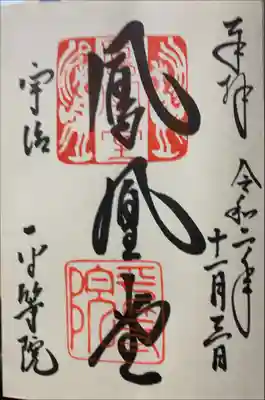 奉拝
令和二年
十一月三日
鳳凰堂
宇治
平等院